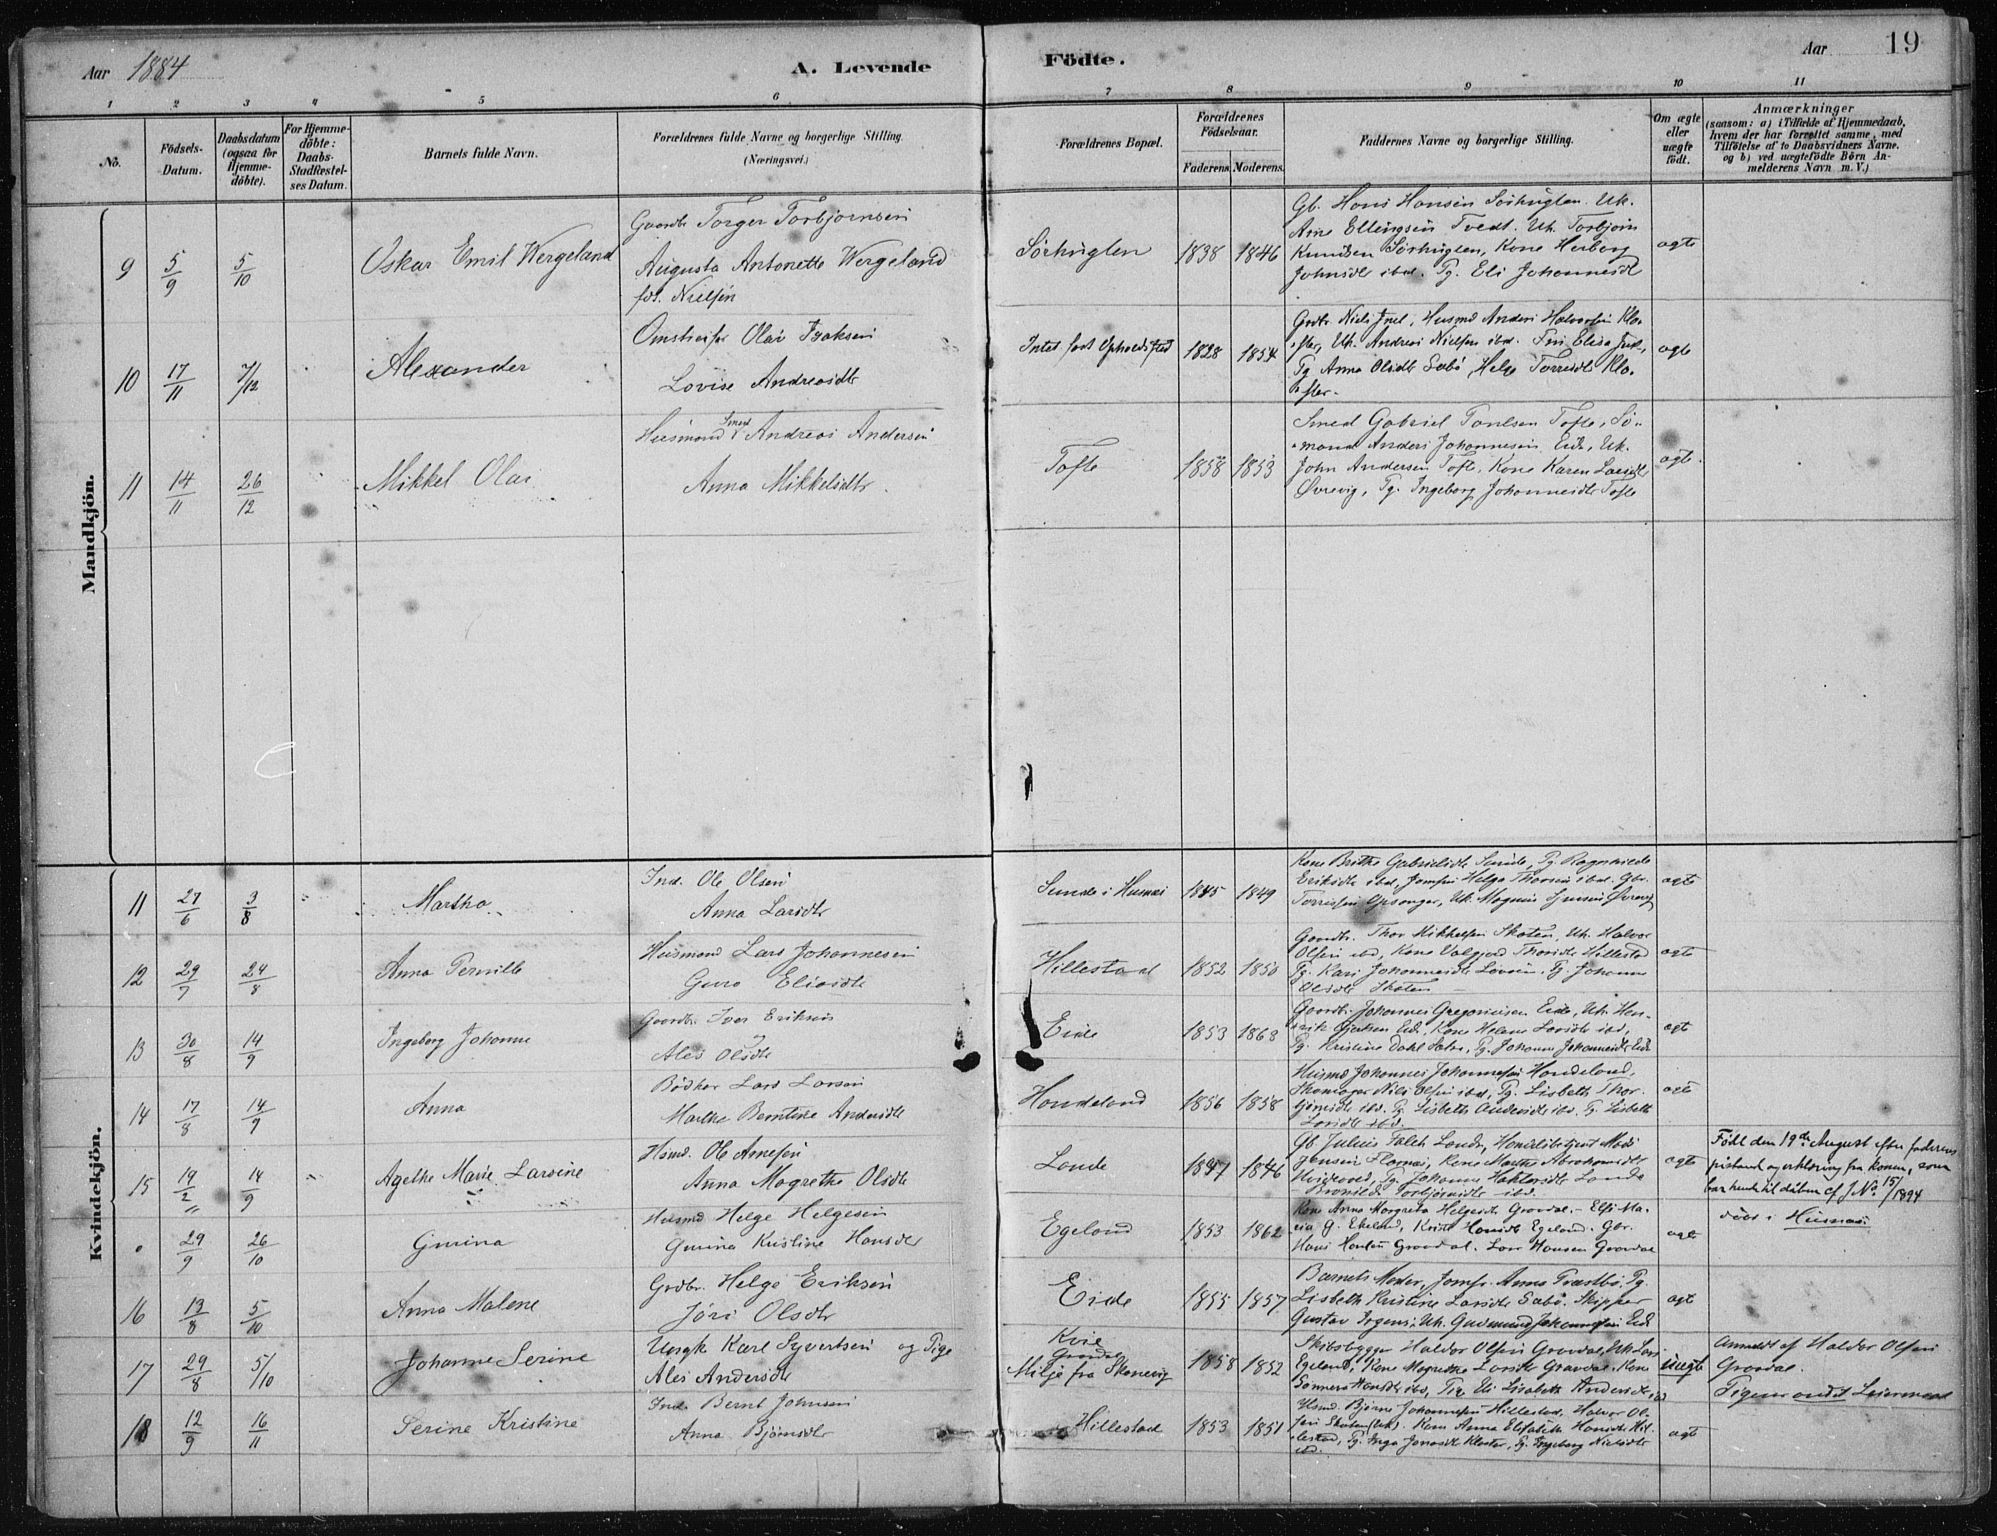 Aar 1884
A. Levende Födte.
Aar 19
1 2 3 4 5 6 7 8 9 10 11
No.
Födsels-Datum.
Daabsdatum (ogsaa for Hjemmedöbte).
For Hjemmedöbte: Daabs-Stadfæstelses Datum.
Barnets fulde Navn.
Forældrenes fulde Navne og borgerlige Stilling.
(Næringsvei.)
Forældrenes Bopæl.
Forældrenes Födselsaar.
Faderens Moderens.
Faddernes Navne og borgerlige Stilling.
Om ægte eller uægte födt.
Anmærkninger
(saasom: a) i Tilfælde af Hjemmedaab,
hvem der har forrettet samme, med
Tilföielse af to Daabsvidners Navne.
og b) ved uægtefödte Börn Anmelderens Navn m. V.)
Mandkjön.
9 5/9 5/10 Oskar Emil Wergeland
Gaardbr Torger Torbjørnsen
Augusta Antonette Wergeland
fdt. Nielsen
Sørhuglen 1838 1846
Gb. Hans Hansen Sørhuglen. Uk.
Arne Ellingsen Tvedt. Uk. Torbjørn
Knudsen Sørhuglen, Kone Herborg
Johnsdt ibd. Pg. Eli Johannesdt
ægte
10 17/11 7/12 Alexander
Omstreifer Olai Isaksen
Lovise Andreasdtr
Intet fast Opholdssted 1828 1854
Grdbr. Niels Juel, Husmd Anders Halvorsen Klo-
ster, Uk. Andreas Nielsen ibd. Fru Elisa Juel,
Pg Anna Olsdt Sæbø, Helge Torresdt Klo-
ster.
ægte
11 14/11 26/12 Mikkel Olai
Husmand Smed Andreas Andersen
Anna Mikkelsdtr.
Tofte 1858 1853
Smed Gabriel Paulsen Tofte, Sø-
mand Anders Johannesen Eide, Uk.
John Andersen Tofte, Kone Karen Larsdt
Øvrevig, Pg. Ingeborg Johannesdt Tofte
ægte.
Kvindekjön.
11 27/6 3/8 Martha
Ind. Ole Olsen
Anna Larsdtr
Sunde i Husnæs 1845 1849
Kone Brithe Gabrielsdt Sunde, Pg. Ragnhilde
Eriksdt ibd, Jomfru Helga Thorsen ibd. Gbr.
ægte
12 29/7 24/8 Anna Pernille
Husmand Lars Johannesen
Guro Eliasdtr
Hillestad 1852 1850
Gaardbr. Thor Mikkelsen Skaten, Uk. Halvor
Olsen ibd, Kone Valgjerd Thorsdt Hillestad
Pg. Kari Johannesdt Pg. Johanne
Olsdtr Skaten
ægte
13 30/8 14/9 Ingeborg Johanne
Gaardbr. Iver Eriksen
Ales Olsdtr
Eide 1853 1863
Gaardbr. Johannes Gregoriusen Eide, Uk. Hen-
rik Eide, Kone Helene Larsdt ibd,
Pg. Kristine Dahl Sæbø, Pg. Johanne Johannesdt Eide
ægt
14 17/8 14/9 Anna
Bødker Lars Larsen
Marthe Berntine Andersdtr
Handeland 1856 1858
Husmd Johannes Johannesen Handeland,
Skomager Nils Olsen ibd, Pg. Lisbeth Thor-
björnsdt ibd. Pg. Lisbeth Andersdt ibd. Pg. Lisbeth
Larsdt ibd.
ægt
15 19/2 14/9 Agethe Marie Larsine
Hsmd. Ole Arnesen
Anna Magrethe Olsdtr
Lande 1847 1846
Gb. Julius Falch Lande, Mads
Jensen Kone Marthe Abrahamsdt
Pg. Johanne Lande
Torbjørnsdt ibd.
ægte
Født den 19de August efter faderens
paastand og erklæring fra konen, som
bar hende til dåben cf J No 15/1894
29/9 26/10 Gurina
Husmd Helge Helgesen
Gurina Kristine Hansdtr
Egeland 1853 1862
Kone Anna Margreta Helgesdt Gravdal.
Egeland. Gbr.
Hans Hansen Gravdal. Lars Hansen Gravdal
ægt
døbt i Husnæs.
16 13/8 5/10 Anna Malene
Grdbr. Helge Eriksen
Jóri Olsdtr
Eide 1855 1857
Barnets Moder, Jomfr. Anna Præstbø, Pg.
Lisbeth Kristine Larsdt Sæbø. Skipper
Gustav Irgens, Uk. Gudmund Johannesen Eide
ægt
17 29/8 5/10 Johanne Serine
Ungk Karl Syvertsen og Pige
Ales Andersdt
Milje fra Skonevig 1858 1852
Skibsbygger Haldor Olsen Gravdal, Uk. Lars
Egeland, Kone Magrethe Larsdtr Gravdal. Kone
Hansdt ibd, Pig Eli Lisabeth Andersdt ibd
uægte
Anmeldt af Haldor Olsen
Gravdal.
Pigens andet Leiermaal
18 12/9 16/11 Serine Kristine
Ind. Bernt Johnsen
Anna Bjørnsdtr
Hillestad 1853 1851
Hsmd. Bjørne Johannesen Hillestad, Halvor Ol-
sen Skaten (Uk). Kone Anna Elisabeth Hansdt Hil-
lestad, Pg. Inga Jonasdt Kloster, Pg. Ingeborg Nielsdtr
ibd.
ægt